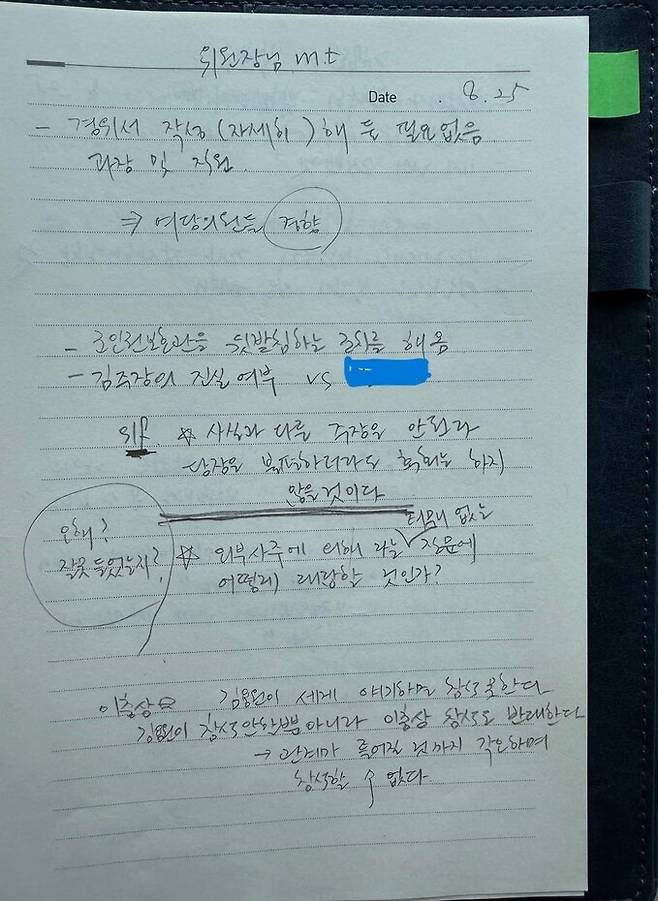 위원장님 m.t
Date . 8. 25
- 경위서 작성(자세히)해 둘 필요없음
과장 및 직원.
⇒ 여당의원들 경향
- 군인권보호관을 뒷받침하는 조치를 해옴
- 김주장의 진실 여부 vs
self. ☆ 사실과 다른 주장을 안된다
당장은 불편하더라도 후회는 하지
않을 것이다
오해?
잘못 들었는지?
☆ 외부사주에 의해 라는 터무니 없는 질문에
어떻게 대답할 것인가?
이충상은 김용원이 세게 얘기하면 참석 못한다
김용원이 참석안할뿐아니라 이충상 참석도 반대한다
→ 관계가 틀어질 것까지 각오하며
참석할 수 없다